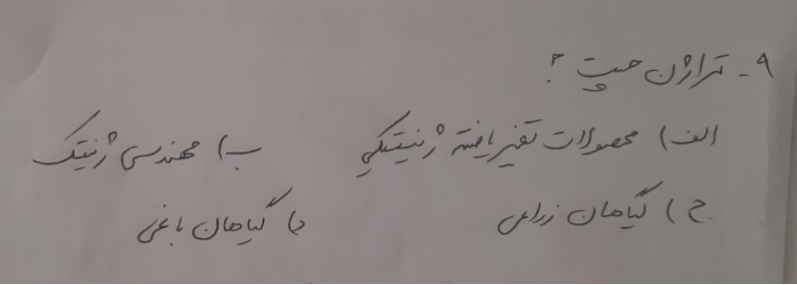 ۹- تراژن چیست ؟
الف) محصولات تغیر یافته ژنیتیکی ب) مهندسی ژنیتک
ج) گیاهان زراعی د) گیاهان باغی